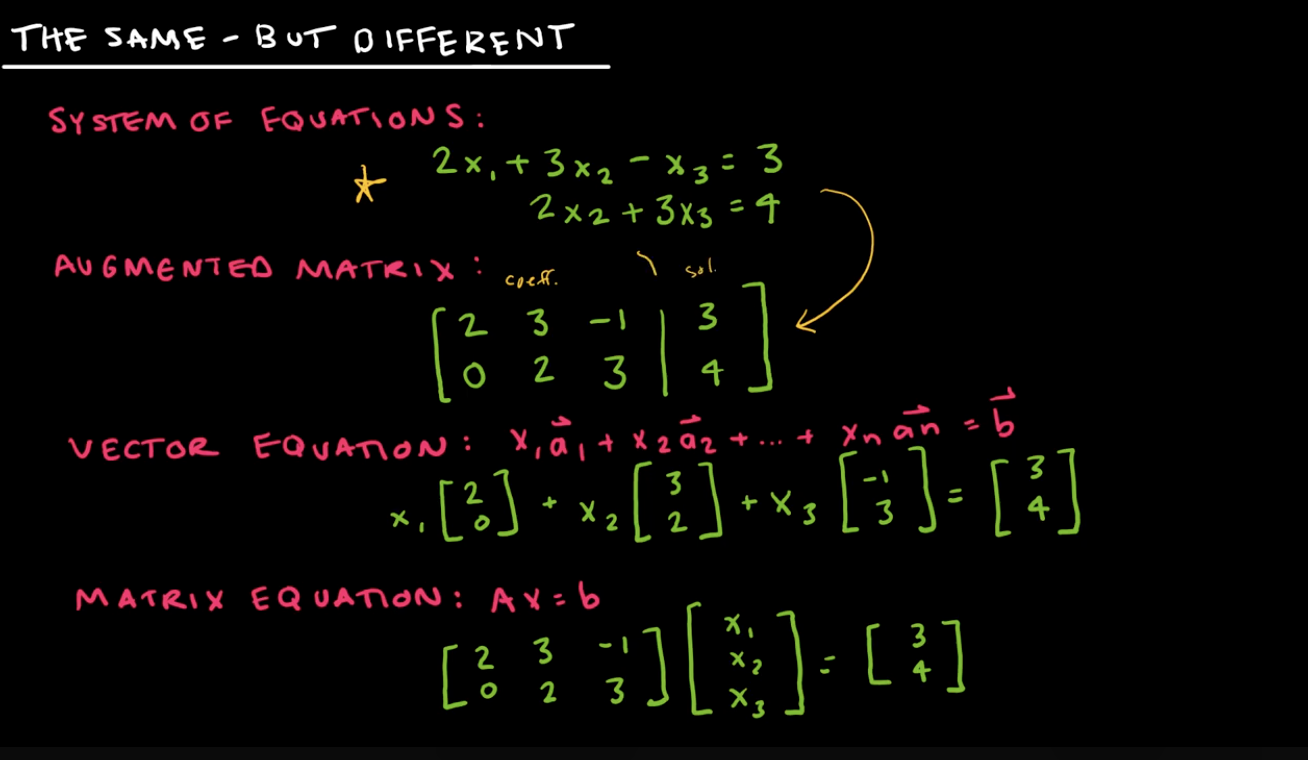 THE SAME - BUT DIFFERENT
SYSTEM OF EQUATIONS:
2x₁ + 3x₂ - x₃ = 3
2x₂ + 3x₃ = 4
AUGMENTED MATRIX:
coeff. sol.
[2 3 -1 | 3]
[0 2 3 | 4]
VECTOR EQUATION: x₁a⃗₁ + x₂a⃗₂ + ... + xₙa⃗ₙ = b⃗
x₁[2 0] + x₂[3 2] + x₃[-1 3] = [3 4]
MATRIX EQUATION: Ax = b
[2 3 -1; 0 2 3] [x₁ x₂ x₃] = [3 4]